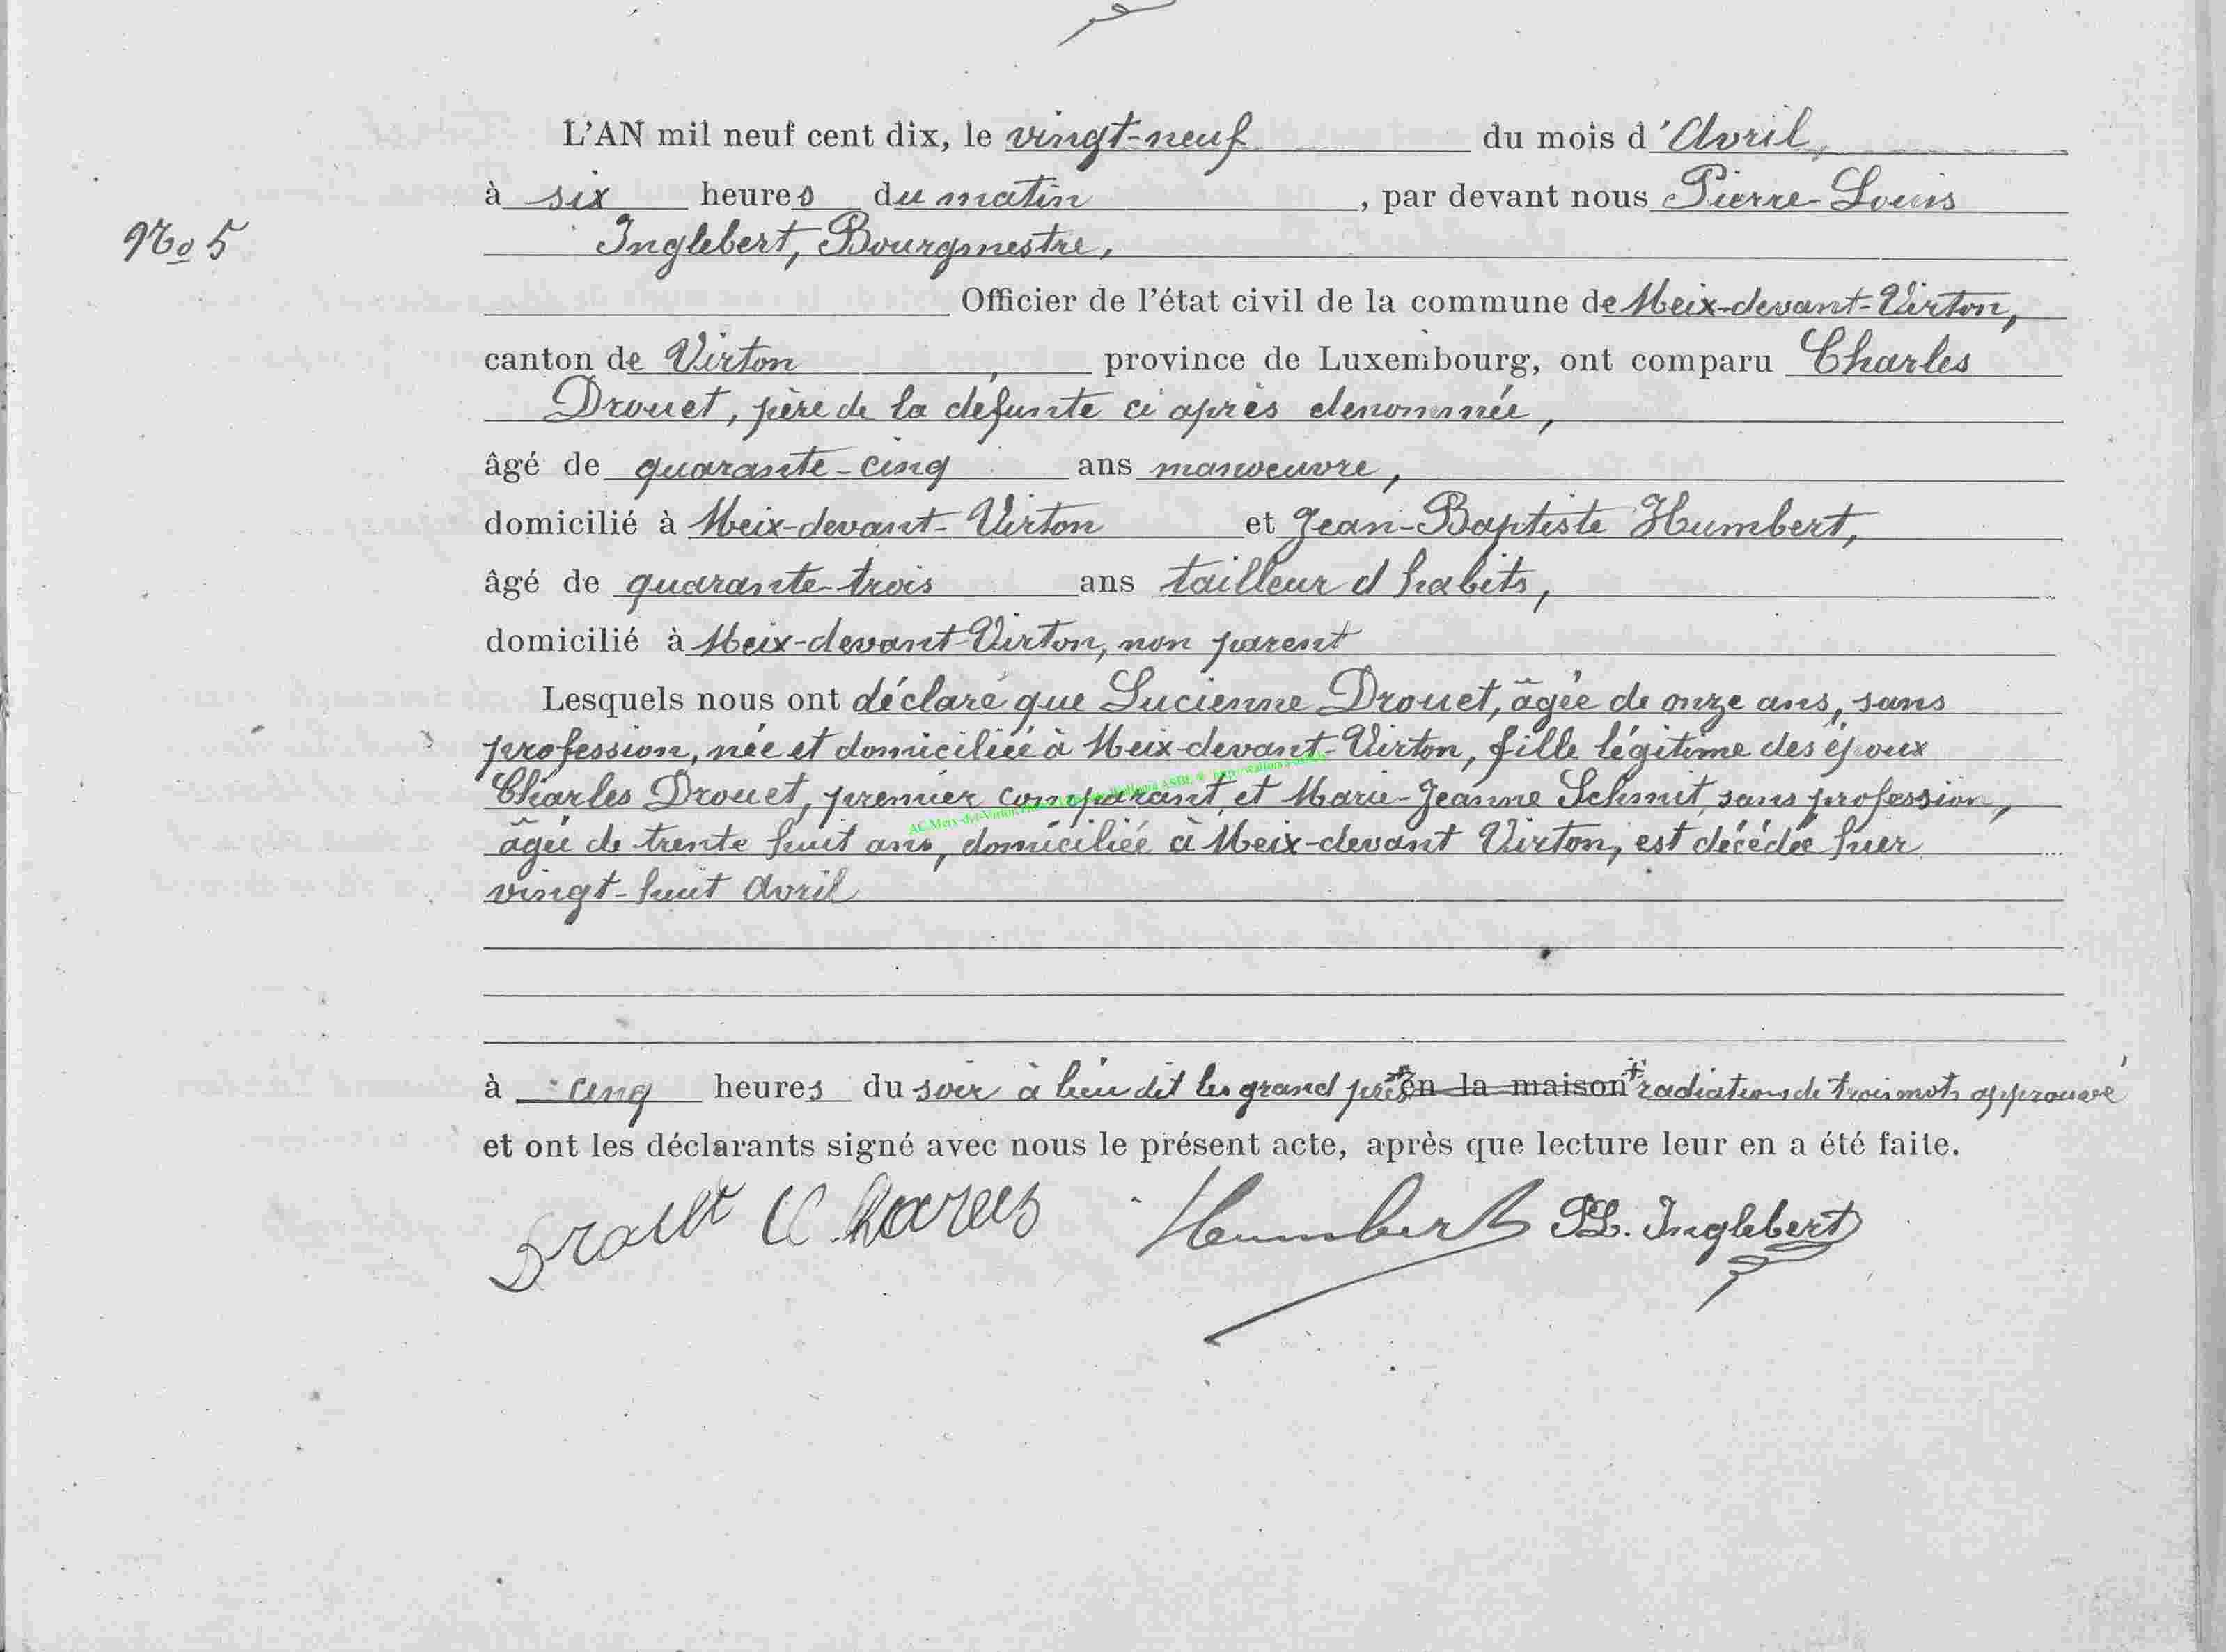 L'AN mil neuf cent dix, le vingt-neuf du mois d'Avril,
à six heures du matin, par devant nous Pierre-Louis
No 5
Inglebert, Bourgmestre,
Officier de l'état civil de la commune de Meix-devant-Virton,
canton de Virton, province de Luxembourg, ont comparu Charles
Drouet, père de la défunte ci après dénommée,
âgé de quarante-cinq ans manoeuvre,
domicilié à Meix-devant-Virton et Jean-Baptiste Humbert,
âgé de quarante-trois ans tailleur d habits,
domicilié à Meix-devant-Virton, non parent
Lesquels nous ont déclaré que Lucienne Drouet, âgée de onze ans, sans
profession, née et domiciliée à Meix-devant-Virton, fille légitime des époux
Charles Drouet, premier comparant, et Marie-Jeanne Schmit, sans profession,
âgée de trente huit ans, domiciliée à Meix-devant Virton, est décédée hier
vingt-huit Avril
à cinq heures du soir à lieu dit les grand prés en la maison radiation de trois mots approuvé
et ont les déclarants signé avec nous le présent acte, après que lecture leur en a été faite.
Charles Humbert PL. Inglebert